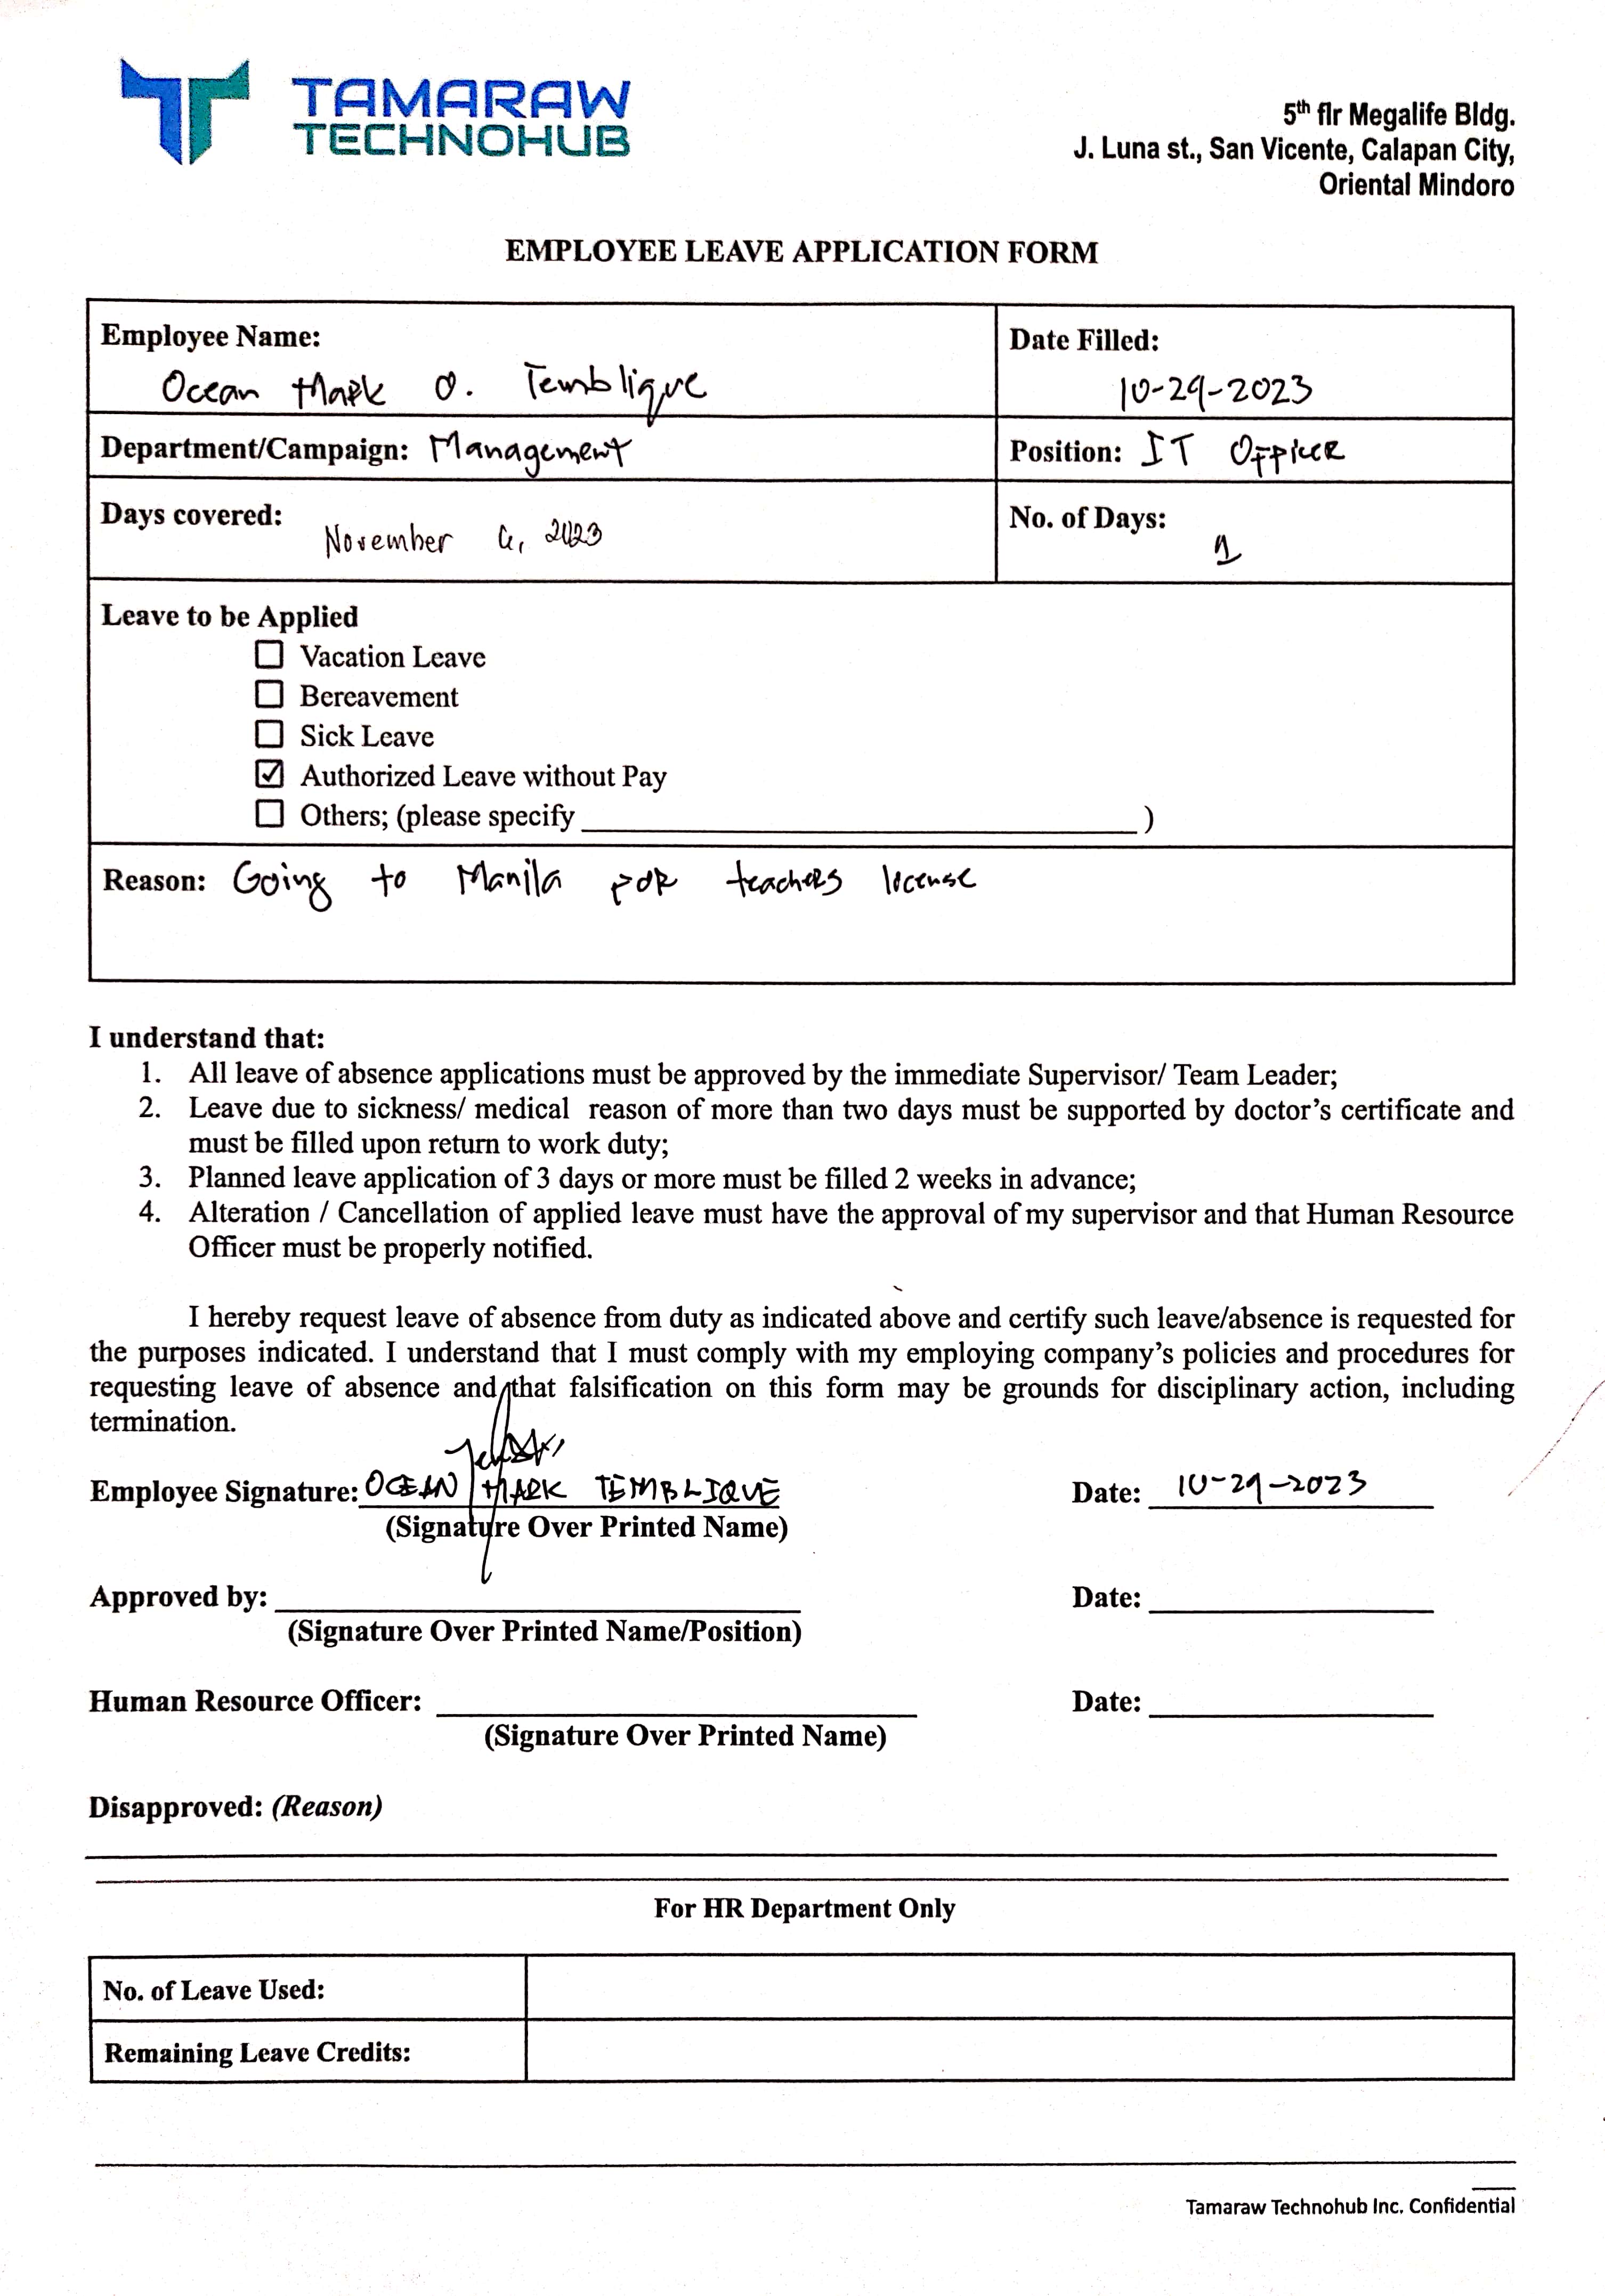 TAMARAW
TECHNOHUB
5th flr Megalife Bldg.
J. Luna st., San Vicente, Calapan City,
Oriental Mindoro
EMPLOYEE LEAVE APPLICATION FORM
Employee Name:
Ocean Mark O. Temblique
Date Filled:
10-29-2023
Department/Campaign: Management
Position: IT Officer
Days covered: November 6, 2023
No. of Days: 1
Leave to be Applied
Vacation Leave
Bereavement
Sick Leave
Authorized Leave without Pay
Others; (please specify )
Reason: Going to Manila for teachers license
I understand that:
1. All leave of absence applications must be approved by the immediate Supervisor/ Team Leader;
2. Leave due to sickness/ medical reason of more than two days must be supported by doctor's certificate and
must be filled upon return to work duty;
3. Planned leave application of 3 days or more must be filled 2 weeks in advance;
4. Alteration / Cancellation of applied leave must have the approval of my supervisor and that Human Resource
Officer must be properly notified.
I hereby request leave of absence from duty as indicated above and certify such leave/absence is requested for
the purposes indicated. I understand that I must comply with my employing company's policies and procedures for
requesting leave of absence and that falsification on this form may be grounds for disciplinary action, including
termination.
Employee Signature: OCEAN MARK TEMBLIQUE
Date: 10-29-2023
(Signature Over Printed Name)
Approved by:
Date:
(Signature Over Printed Name/Position)
Human Resource Officer:
Date:
(Signature Over Printed Name)
Disapproved: (Reason)
For HR Department Only
No. of Leave Used:
Remaining Leave Credits:
Tamaraw Technohub Inc. Confidential